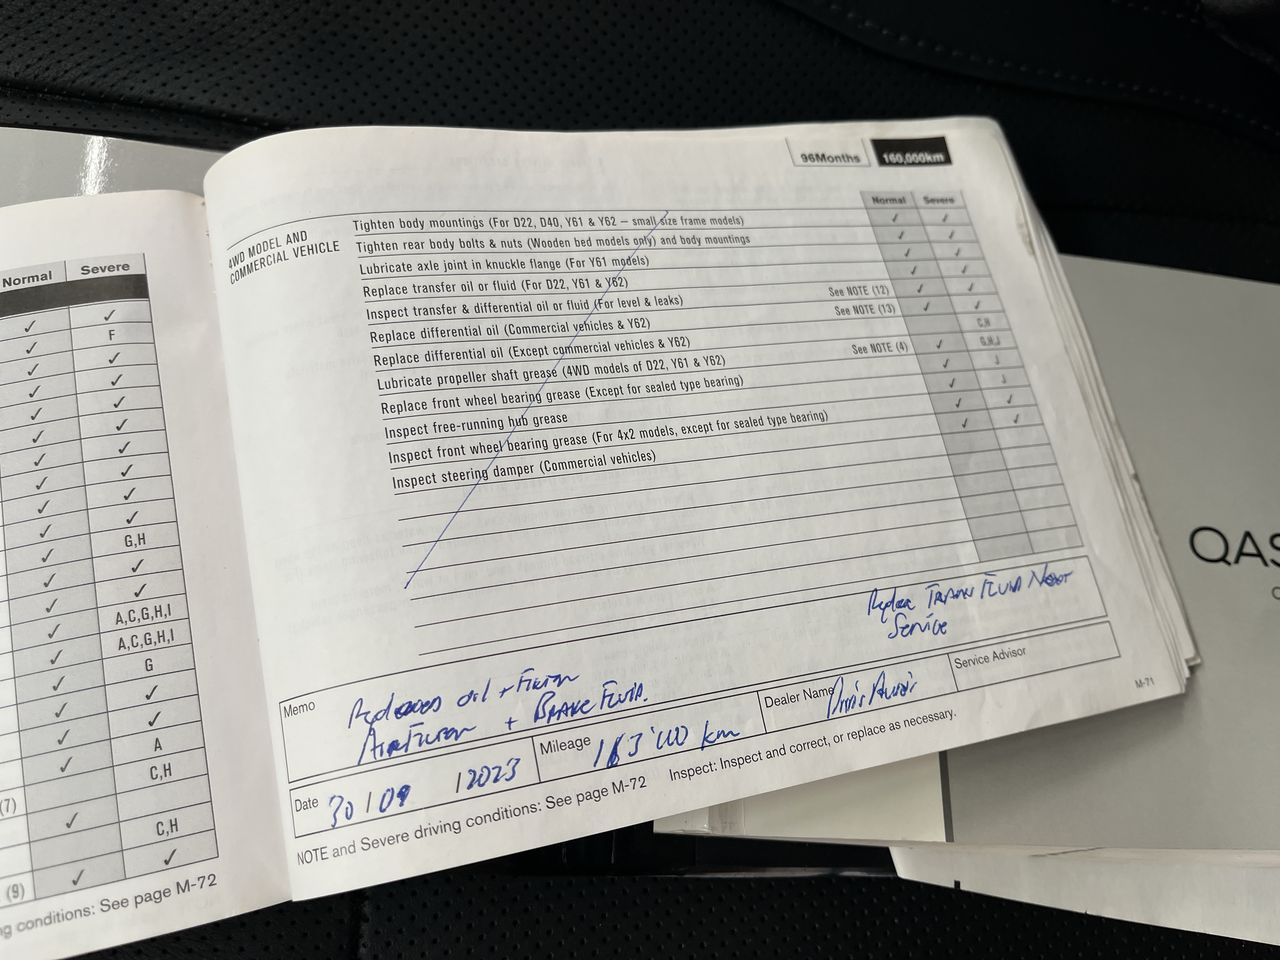 Normal Severe
✓ ✓
✓ F
✓ ✓
✓ ✓
✓ ✓
✓ ✓
✓ ✓
✓ ✓
✓ ✓
✓ ✓
✓ G,H
✓ ✓
✓ ✓
✓ A,C,G,H,I
✓ A,C,G,H,I
✓ G
✓ ✓
✓ ✓
✓ A
C,H
(7) ✓
C,H
(9) ✓ ✓
conditions: See page M-72
96Months 160,000km
Normal Severe
4WD MODEL AND
COMMERCIAL VEHICLE
Tighten body mountings (For D22, D40, Y61 & Y62 – small size frame models) ✓ ✓
Tighten rear body bolts & nuts (Wooden bed models only) and body mountings ✓ ✓
Lubricate axle joint in knuckle flange (For Y61 models) ✓ ✓
Replace transfer oil or fluid (For D22, Y61 & Y62) ✓ ✓
Inspect transfer & differential oil or fluid (For level & leaks) See NOTE (12) ✓ ✓
Replace differential oil (Commercial vehicles & Y62) See NOTE (13) ✓ ✓
Replace differential oil (Except commercial vehicles & Y62) C,H
Lubricate propeller shaft grease (4WD models of D22, Y61 & Y62) See NOTE (4) ✓ G,H,J
Replace front wheel bearing grease (Except for sealed type bearing) ✓ J
Inspect free-running hub grease ✓ J
Inspect front wheel bearing grease (For 4x2 models, except for sealed type bearing) ✓ ✓
Inspect steering damper (Commercial vehicles) ✓ ✓
Fluid Next
Service
Memo oil + Filter
Air Filter + Brake Fluid.
Date 30 / 09 / 2023 Mileage km Dealer Name Service Advisor
NOTE and Severe driving conditions: See page M-72 Inspect: Inspect and correct, or replace as necessary.
M-71
QAS